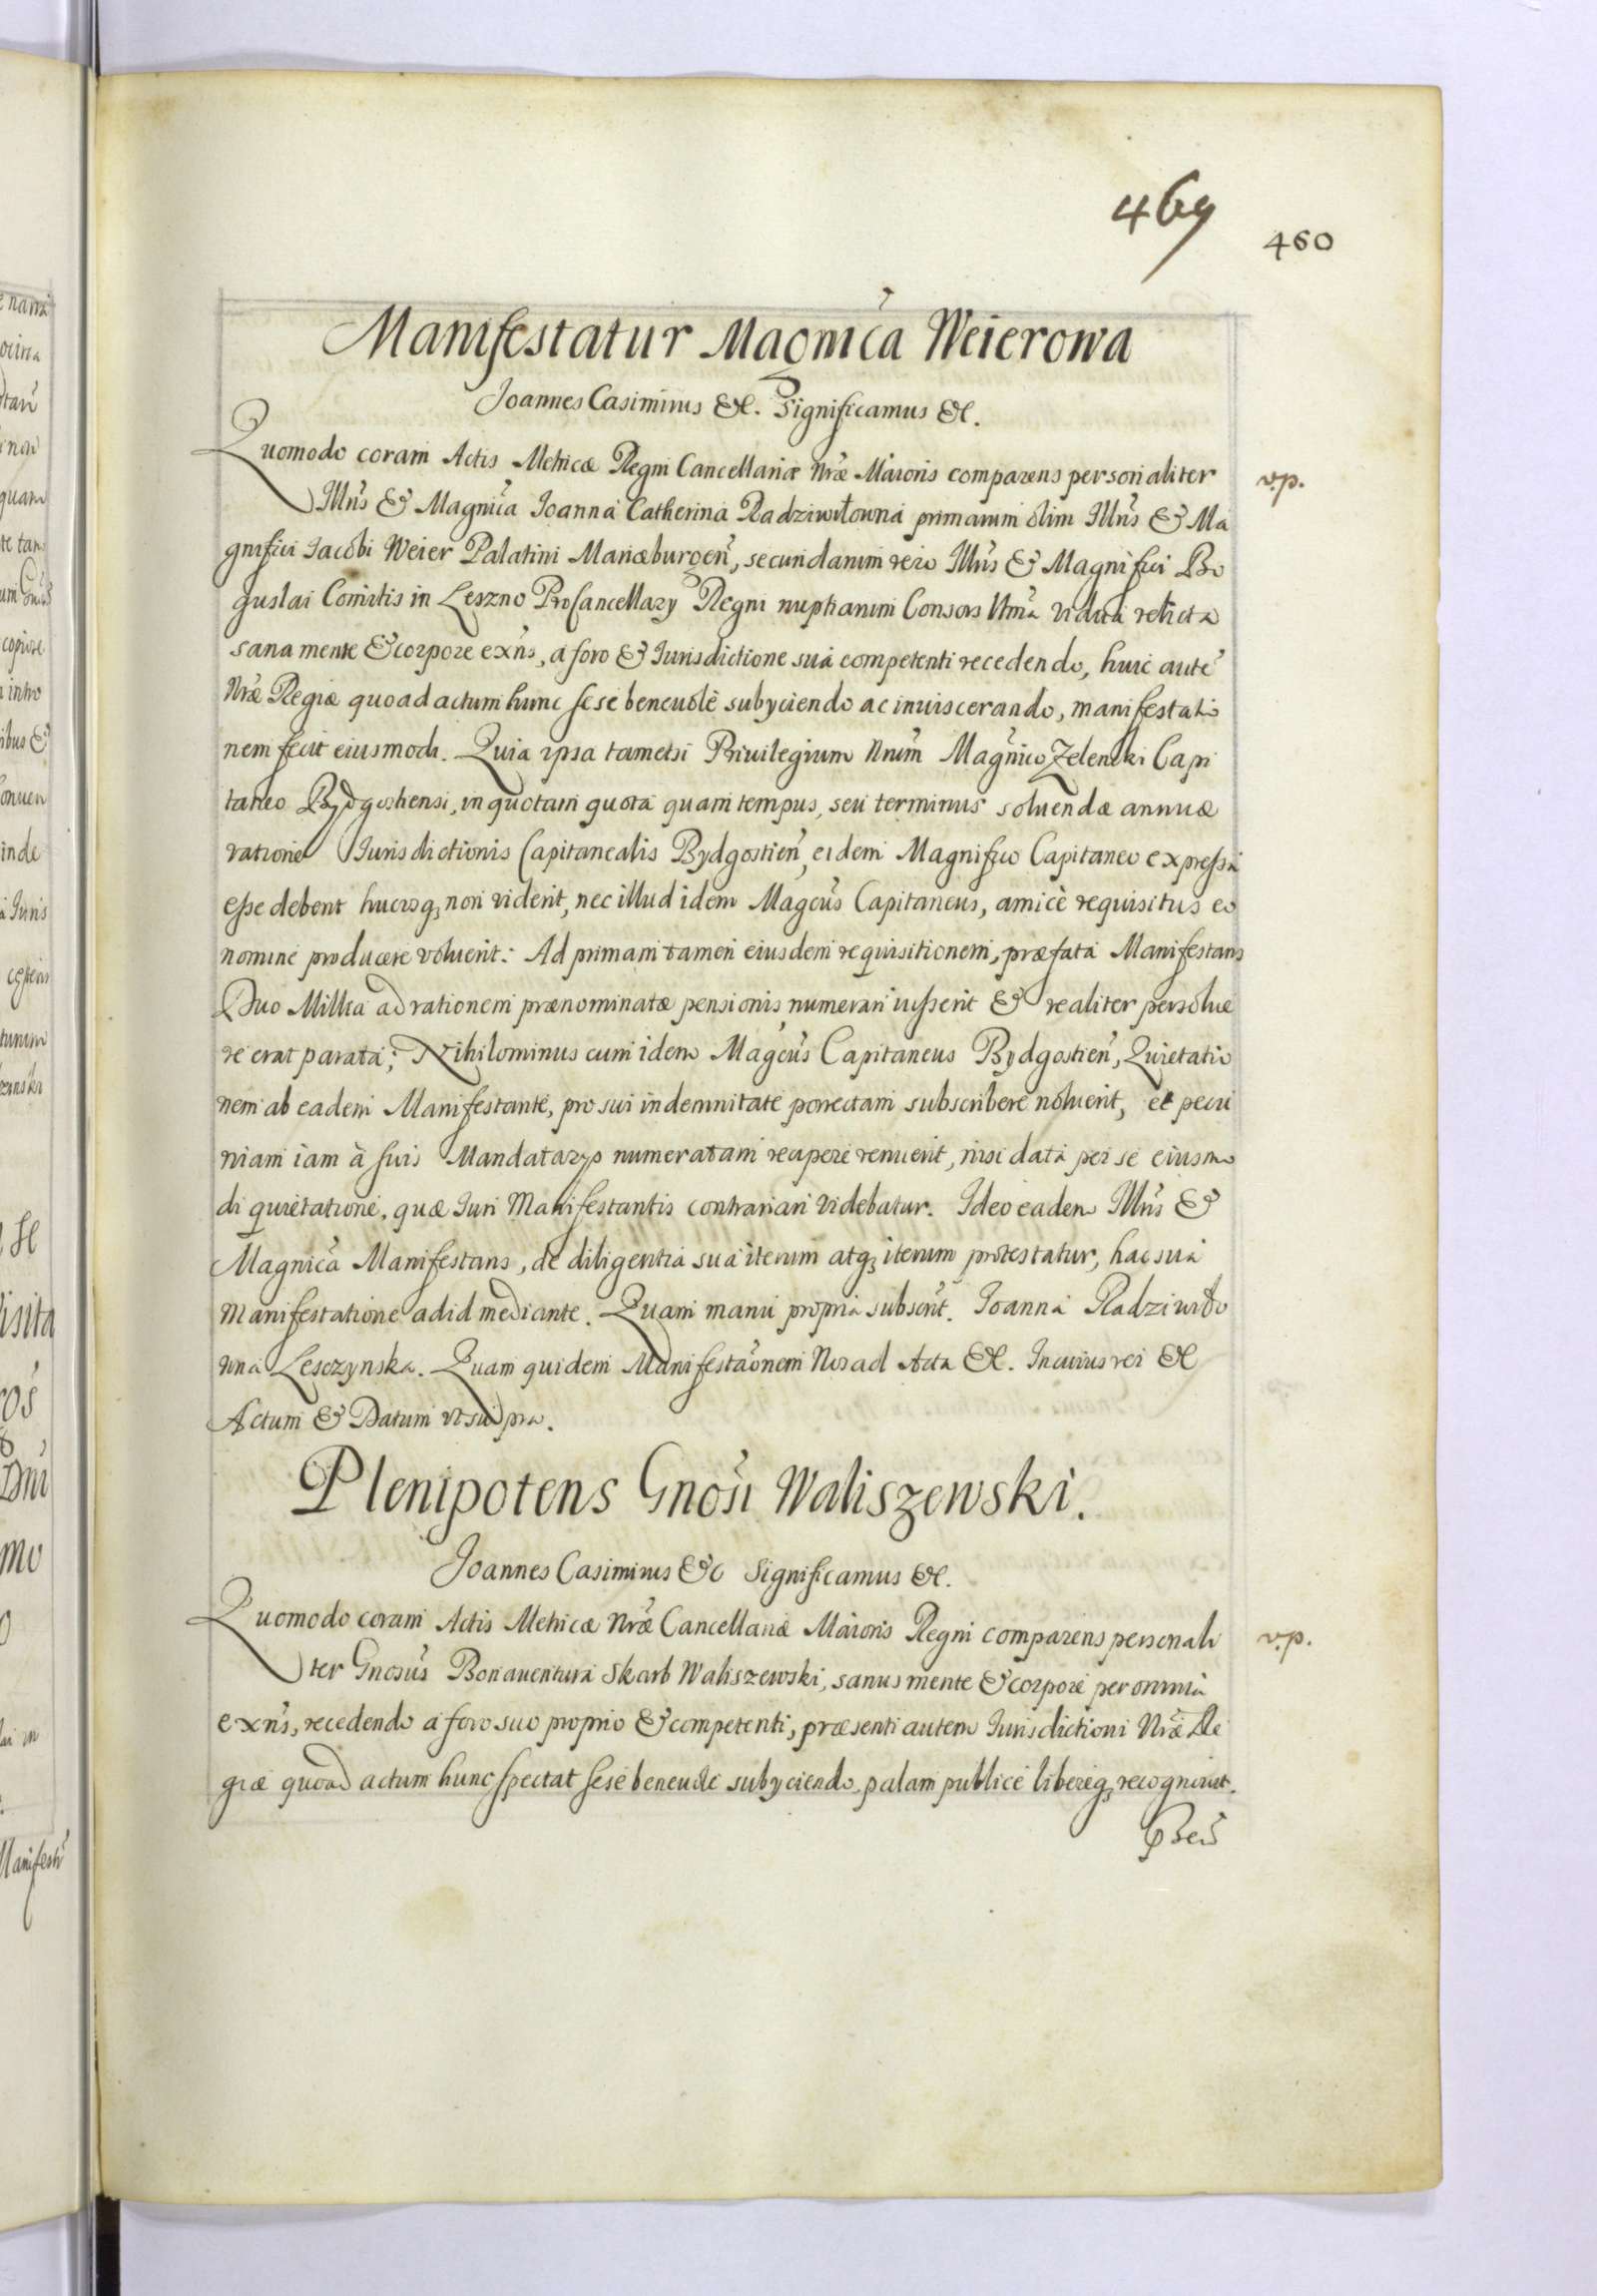 469
460
Manifestatur Magnica Weierowa
Joannes Casimirus &c. Significamus &c.
Quomodo coram Actis Metricæ Regni Cancellariæ Nræ Maioris comparens personaliter
v.p.
Illris & Magnica Joanna Catherina Radziwiłowna primarum olim Illris & Ma
gnifici Jacobi Weier Palatini Mariæburgen, secundarum vero Illris & Magnifici Bo
guslai Comitis in Leszno ProCancellary Regni nuptiarum Consors Ulma vidua relicta
sana mente & corpore exns, a foro & Jurisdictione sua competenti recedendo, huic aute
Nræ Regiæ quo ad actum hunc sese beneuole subyciendo ac inuiscerando, manifestatio
nem fecit eiusmodi. Quia ipsa tametsi Priuilegium Nrum Magnico Zelencki Capi
taneo Bydgostiensi, in quo tam quota quam tempus, seu terminus soluendæ annuæ
ratione Jurisdictionis Capitanealis Bydgostien, eidem Magnifico Capitaneo expressa
esse debent hucusq, non viderit, nec illud idem Magcus Capitaneus, amicè requisitus eo
nomine producere voluerit: Ad primam tamen eiusdem requisitionem, præfata Manifestans
Duo Millia ad rationem prænominatæ pensionis numerari iusserit & realiter persolue
re erat parata; Nihilominus cum idem Magcus Capitaneus Bydgostien, Quietatio
nem ab eadem Manifestante, pro sui indemnitate porrectam subscribere noluerit, et pecu
niam iam à suis Mandatarys numeratam recipere renuerit, nisi data per se eiusmo
di quietatione, quæ Juri Manifestantis contrariari videbatur. Ideo eadem Illris &
Magnica Manifestans, de diligentia sua iterum atq, iterum protestatur, hac sua
manifestatione ad id mediante. Quam manu propria subscrit. Joanna Radziwiło
wna Lesczynska. Quam quidem Manifestaonem Nos ad Acta &c. In cuius rei &c
Actum & Datum ut supra.
Plenipotens Gnosi Waliszewski.
Joannes Casimirus &c Significamus &c.
Quomodo coram Actis Metricæ Nræ Cancellariæ Maioris Regni comparens personali
v.p.
ter Gnosus Bonauentura Skarb Waliszewski, sanus mente & corpore per omnia
exns, recedendo a foro suo proprio & competenti, præsenti autem Jurisdictioni Nræ Re
giæ quoad actum hunc spectat sese beneuole subyciendo, palam publice libereq, recognouit.